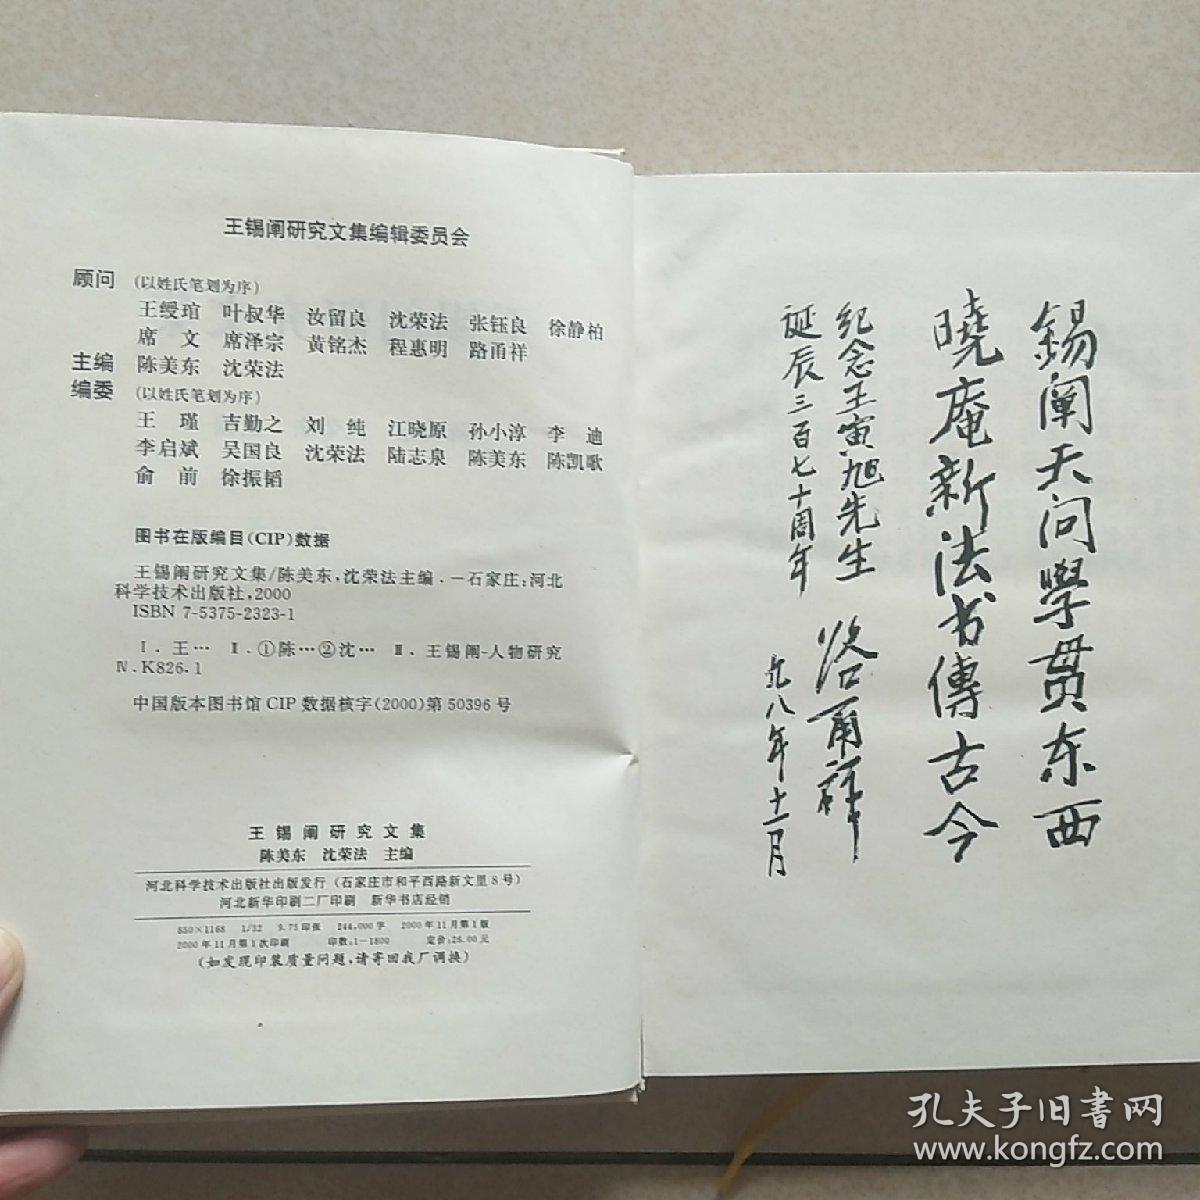 王锡阐研究文集编辑委员会
顾问 (以姓氏笔划为序)
王绶琯 叶叔华 汝留良 沈荣法 张钰良 徐静柏
席文 席泽宗 黄铭杰 程惠明 路甬祥
主编 陈美东 沈荣法
编委 (以姓氏笔划为序)
王瑾 吉勤之 刘纯 江晓原 孙小淳 李迪
李启斌 吴国良 沈荣法 陆志泉 陈美东 陈凯歌
俞前 徐振韬
图书在版编目(CIP)数据
王锡阐研究文集/陈美东,沈荣法主编.—石家庄:河北
科学技术出版社,2000
ISBN 7-5375-2323-1
Ⅰ.王… Ⅱ.①陈…②沈… Ⅲ.王锡阐-人物研究
Ⅳ.K826.1
中国版本图书馆CIP数据核字(2000)第50396号
王锡阐研究文集
陈美东 沈荣法 主编
河北科学技术出版社出版发行 (石家庄市和平西路新文里8号)
河北新华印刷二厂印刷 新华书店经销
850×1168 1/32 9.75印张 244,000字 2000年11月第1版
2000年11月第1次印刷 印数:1—1800 定价:26.00元
(如发现印装质量问题,请寄回我厂调换)
錫阐天问學贯东西
曉庵新法书傳古今
纪念王寅旭先生
诞辰三百七十周年
路甬祥
九八年十一月
孔夫子旧書网
www.kongfz.com